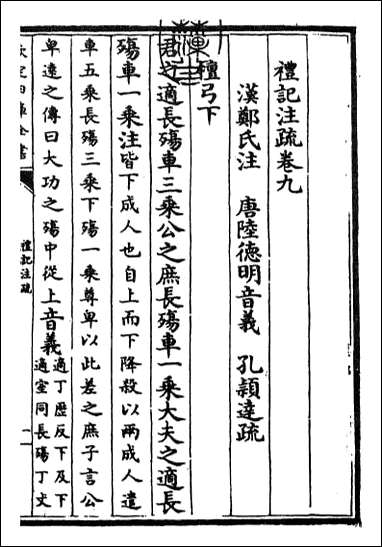 禮記注疏卷九
漢鄭氏注 唐陸德明音義 孔穎達疏
檀弓下
君之適長殤車三乘公之庶長殤車一乘大夫之適長
殤車一乘注皆下成人也自上而下降殺以兩成人遣
車五乘長殤三乘下殤一乘尊卑以此差之庶子言公
卑遠之傳曰大功之殤中從上音義適丁歷反下及下
適室同長殤丁丈
禮記注疏
一